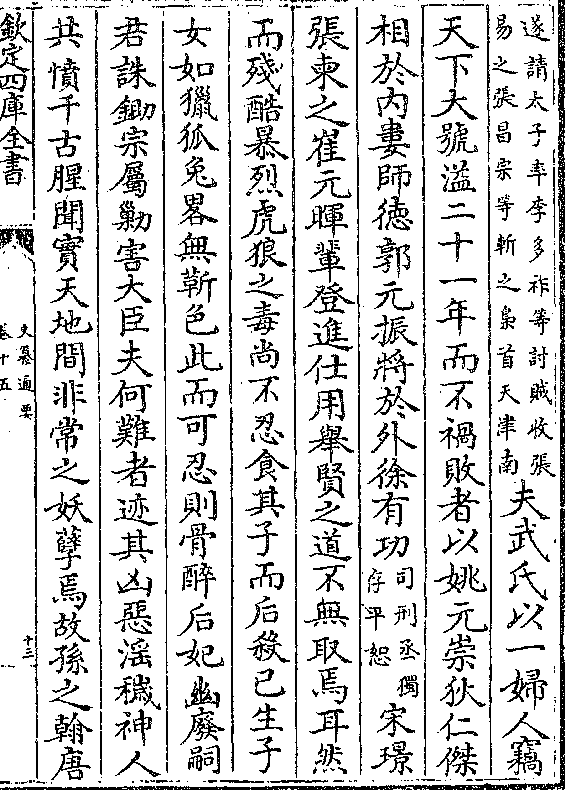 遂請太子率李多祚等討賊收張
易之張昌宗等斬之梟首天津南
夫武氏以一婦人竊
天下大號溢二十一年而不禍敗者以姚元崇狄仁傑
相於內婁師徳郭元振將於外徐有功
司刑丞獨
存平恕
宋璟
張柬之崔元暉輩登進仕用舉賢之道不無取焉耳然
而殘酷暴烈虎狼之毒尚不忍食其子而后殺已生子
女如獵狐兔畧無靳色此而可忍則骨醉后妃幽廢嗣
君誅鋤宗屬勦害大臣夫何難者迹其凶惡滛穢神人
共憤千古腥聞實天地間非常之妖孽焉故孫之翰唐
欽定四庫全書
史纂通要
卷十五
十三